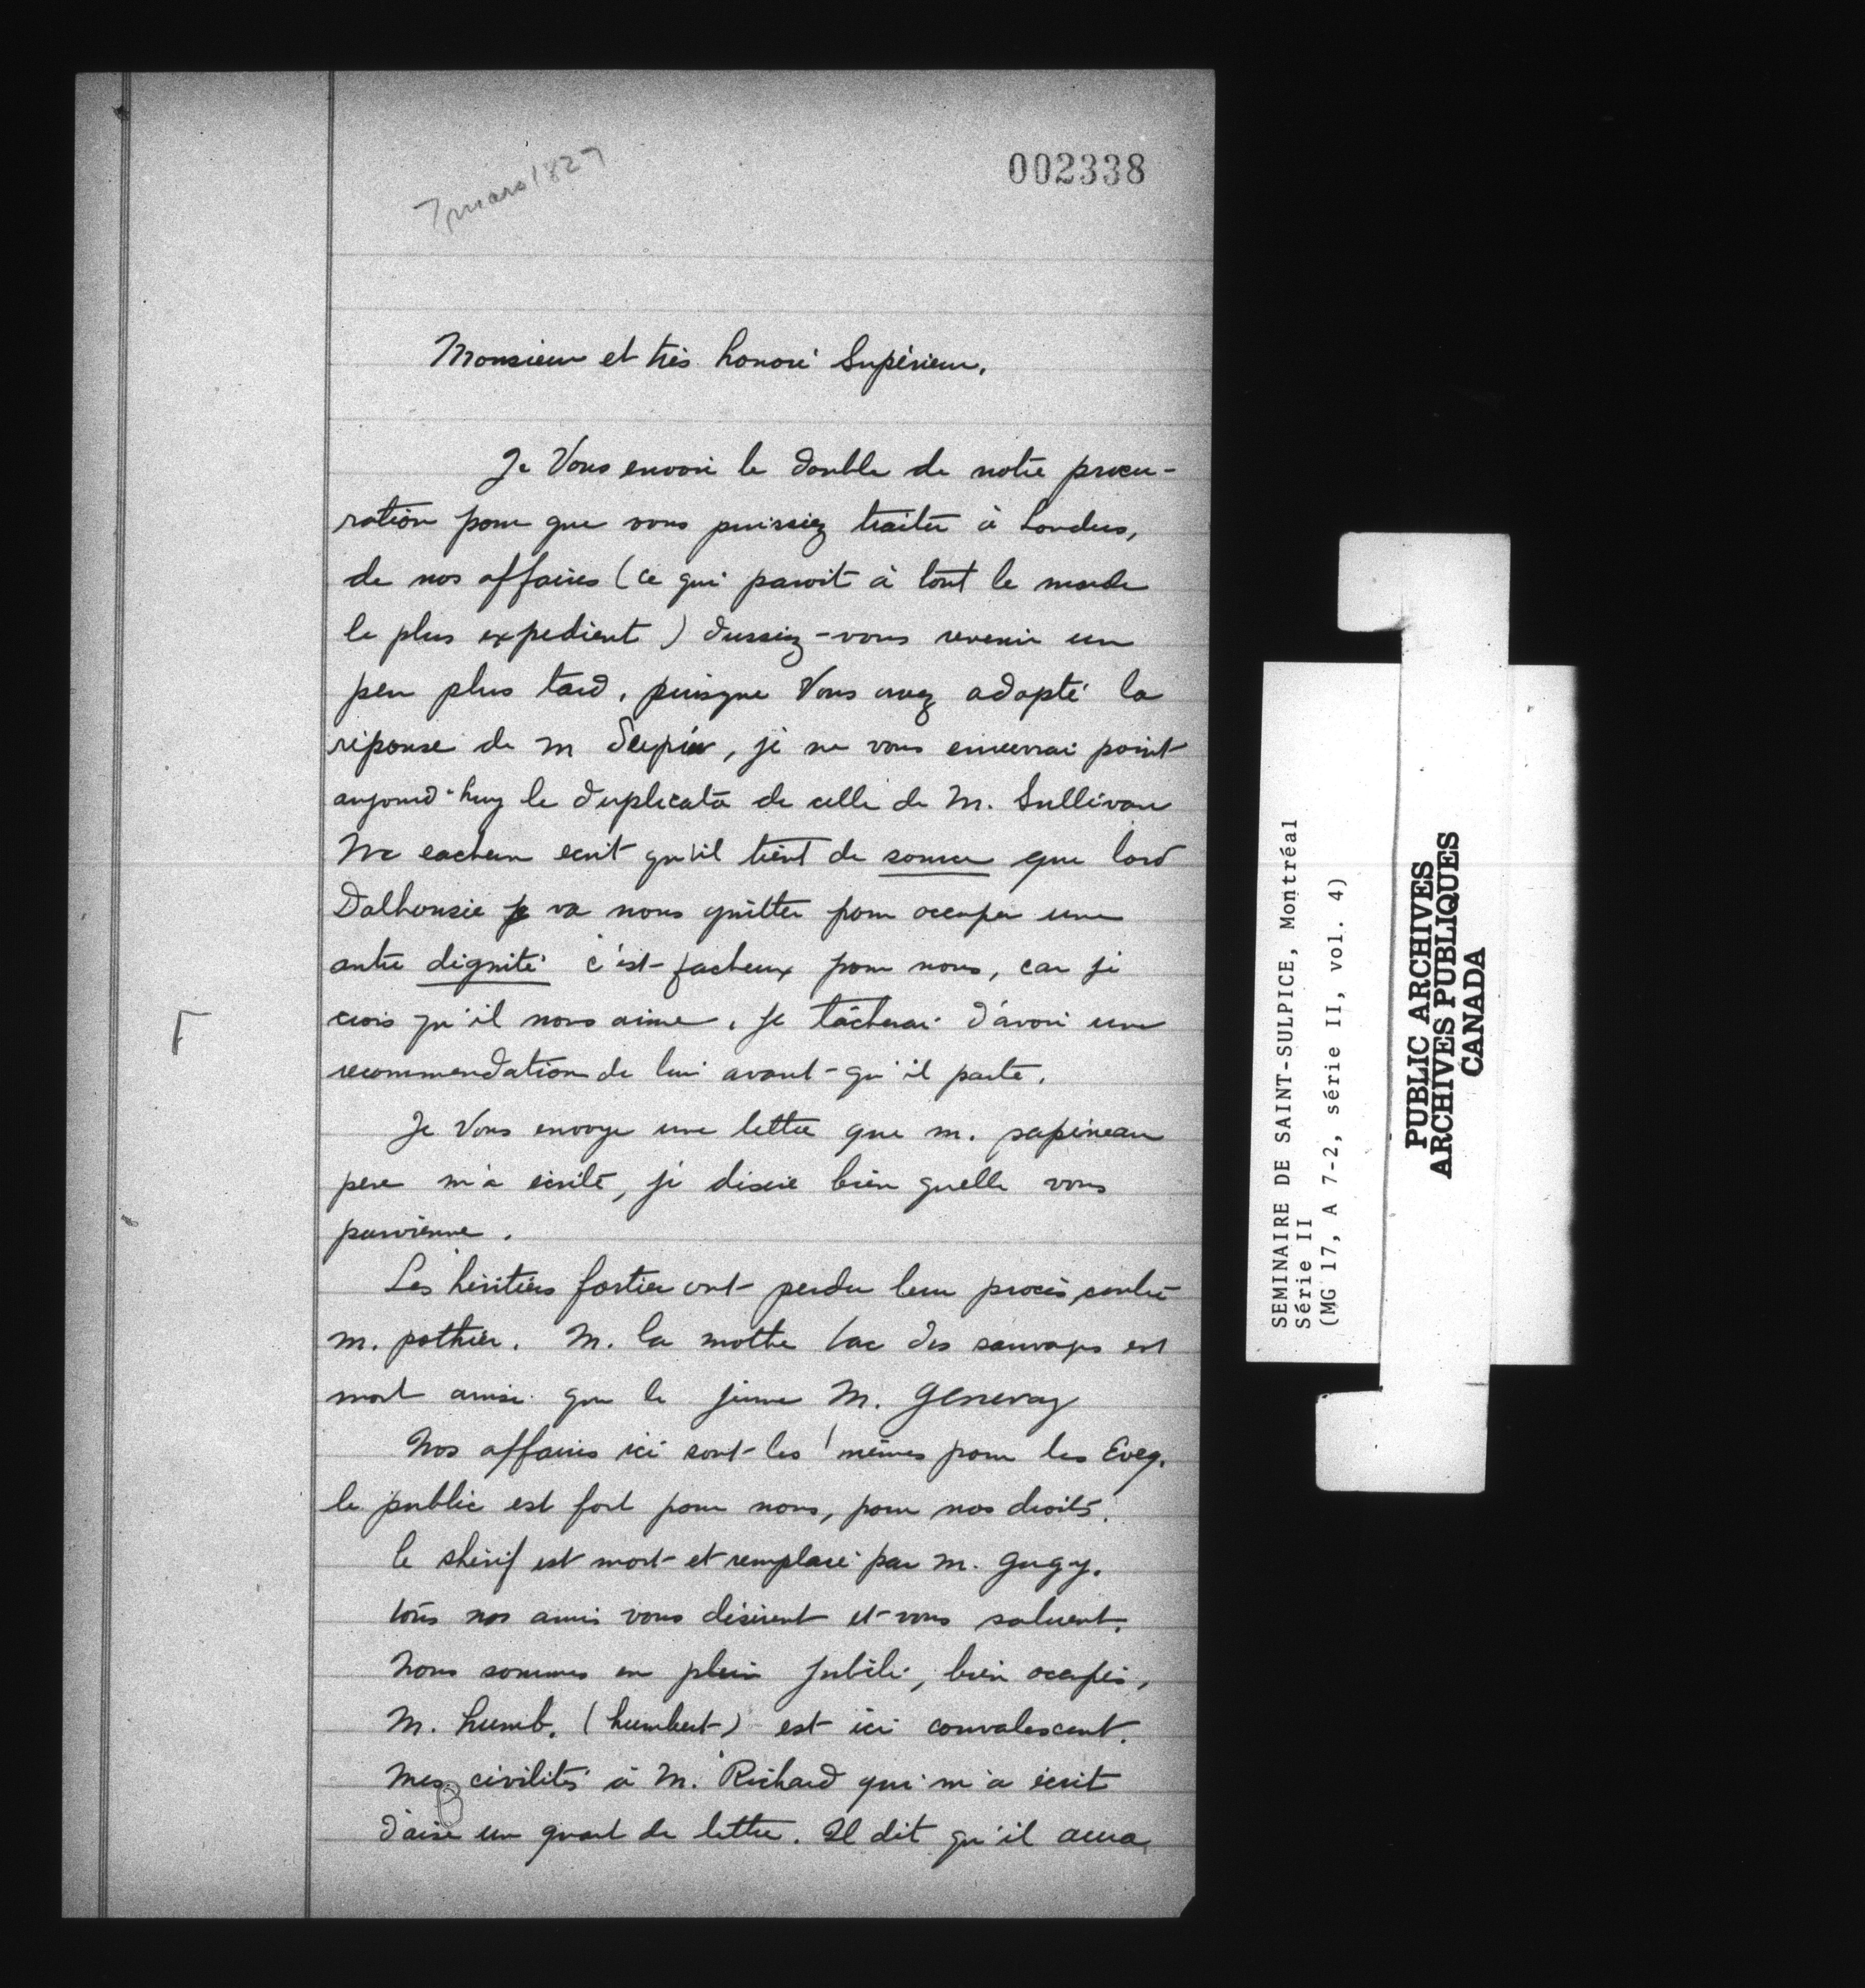 7 mars 1827
002338
Monsieur et très honoré Supérieur.
Je Vous envoie le double de notre procu-
ration pour que vous puissiez traiter à Londres,
de nos affaires (ce qui paroit à tout le monde
le plus expedient) dussiez-vous revenir un
peu plus tard. puisque Vous avez adopté la
réponse de M , je ne vous enverrai point
aujourd'huy le duplicata de celle de M. Sullivan
Mc eachern ecrit qu'il tient de source que lord
Dalhousie va nous quitter pour occuper une
autre dignité c'est facheux pour nous, car je
crois qu'il nous aime. je tâcherai d'avoir une
recommendation de lui avant-qu'il parte.
Je Vous envoye une lettre que m. papineau
pere m'a écrite, je désire bien quelle vous
parvienne.
Les héritiers fortier ont perdu leur procès contre
m. pothier. M. la mothe des sauvages est
mort ainsi que le jeune M. Genevay
Nos affaires ici sont les mêmes pour les Eveq.
le public est fort pour nous, pour nos droits.
le shérif est mort et remplacé par m. gugy.
tous nos amis vous désirent et vous saluent.
Nous sommes en plein jubilé, bien occupés,
M. humb. (humbert) est ici convalescent.
Mes civilités à M. Richard qui m'a écrit
un quart de lettre. Il dit qu'il aura
F
B
SEMINAIRE DE SAINT-SULPICE, Montréal
Série II
(MG 17, A 7-2, série II, vol. 4)
PUBLIC ARCHIVES
ARCHIVES PUBLIQUES
CANADA